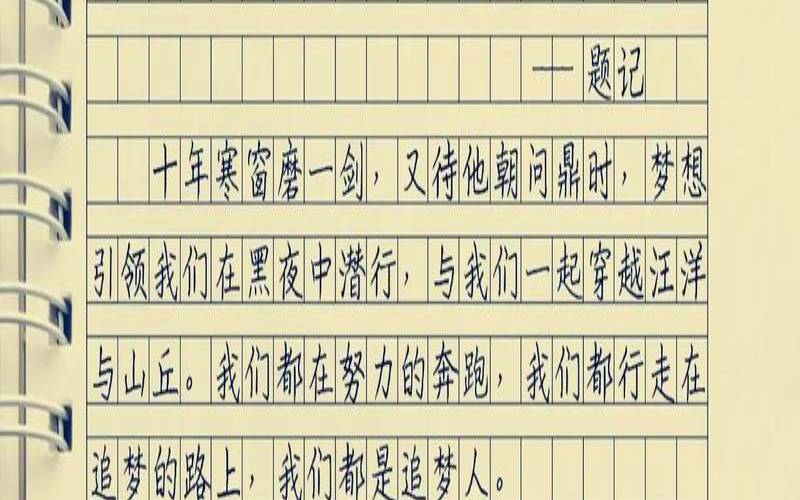 ——题记
十年寒窗磨一剑，又待他朝问鼎时，梦想
引领我们在黑夜中潜行，与我们一起穿越汪洋
与山丘。我们都在努力的奔跑，我们都行走在
追梦的路上，我们都是追梦人。